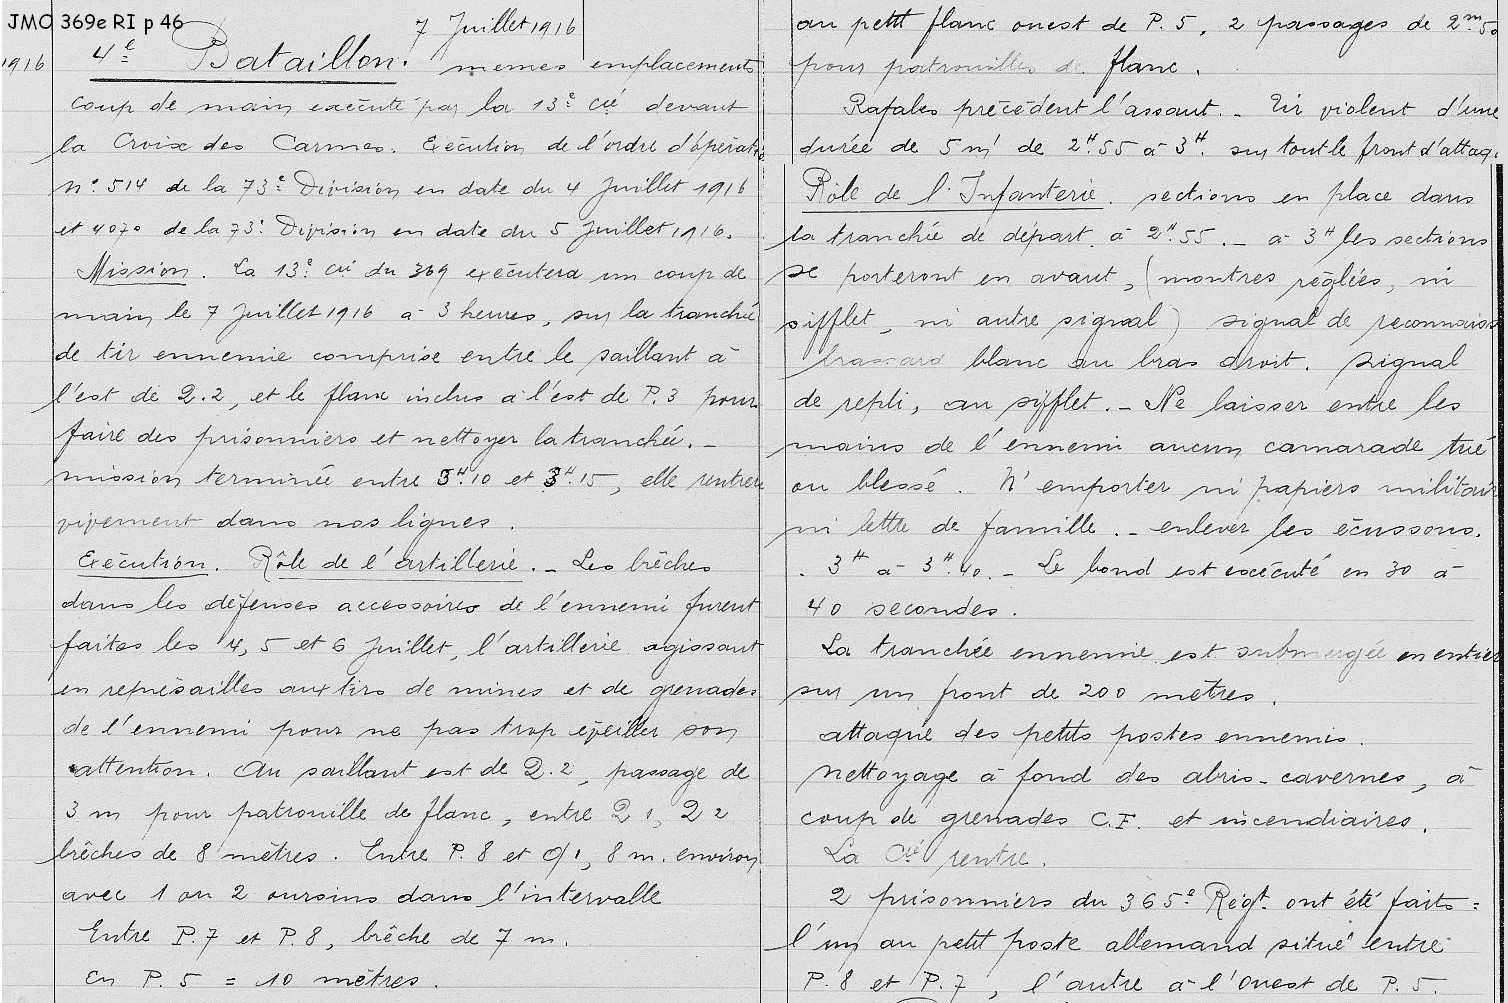 JMO 369e RI p 46
7 Juillet 1916
1916
4e Bataillon. mêmes emplacements
coup de main exécuté par la 13e Cie devant
la Croix des Carmes. Exécution de l'ordre d'opérati
n° 514 de la 73e Division en date du 4 Juillet 1916
et 4070 de la 73e Division en date du 5 Juillet 1916.
Mission. La 13e Cie du 369 exécutera un coup de
main le 7 Juillet 1916 à 3 heures, sur la tranchée
de tir ennemie comprise entre le saillant à
l'est de Q.2, et le flanc inclus à l'est de P.3 pour
faire des prisonniers et nettoyer la tranchée. -
mission terminée entre 3H.10 et 3H.15, elle rentrera
vivement dans nos lignes.
Exécution. Rôle de l'artillerie. - Les brêches
dans les défenses accessoires de l'ennemi furent
faites les 4, 5 et 6 Juillet, l'artillerie agissant
en représailles aux tirs de mines et de grenades
de l'ennemi pour ne pas trop éveiller son
attention. Au saillant est de Q.2, passage de
3 m pour patrouille de flanc, entre Q 1, Q 2
brêches de 8 mètres. Entre P.8 et Q1, 8 m. environ
avec 1 ou 2 oursins dans l'intervalle
Entre P.7 et P.8, brêche de 7 m.
En P.5 = 10 mètres.
au petit flanc ouest de P.5, 2 passages de 2m50
pour patrouilles de flanc.
Rafales précèdent l'assaut. - Tir violent d'une
durée de 5 m' de 2H.55 à 3H. sur tout le front d'attaq.
Rôle de l'Infanterie. sections en place dans
la tranchée de départ à 2H.55. - à 3H les sections
se porteront en avant, (montres réglées, ni
sifflet, ni autre signal) signal de reconnaiss
brassard blanc au bras droit. signal
de repli, au sifflet. - Ne laisser entre les
mains de l'ennemi aucun camarade tué
ou blessé. N'emporter ni papiers militair
ni lettre de famille. - enlever les écussons.
. 3H à 3H.10. - Le bond est exécuté en 30 à
40 secondes.
La tranchée ennemie est submergée en entier
sur un front de 200 mètres.
attaque des petits postes ennemis.
Nettoyage à fond des abris-cavernes, à
coup de grenades C.F. et incendiaires.
La Cie rentre.
2 prisonniers du 365e Régt. ont été faits =
l'un au petit poste allemand situé entre
P.8 et P.7, l'autre à l'Ouest de P.5.